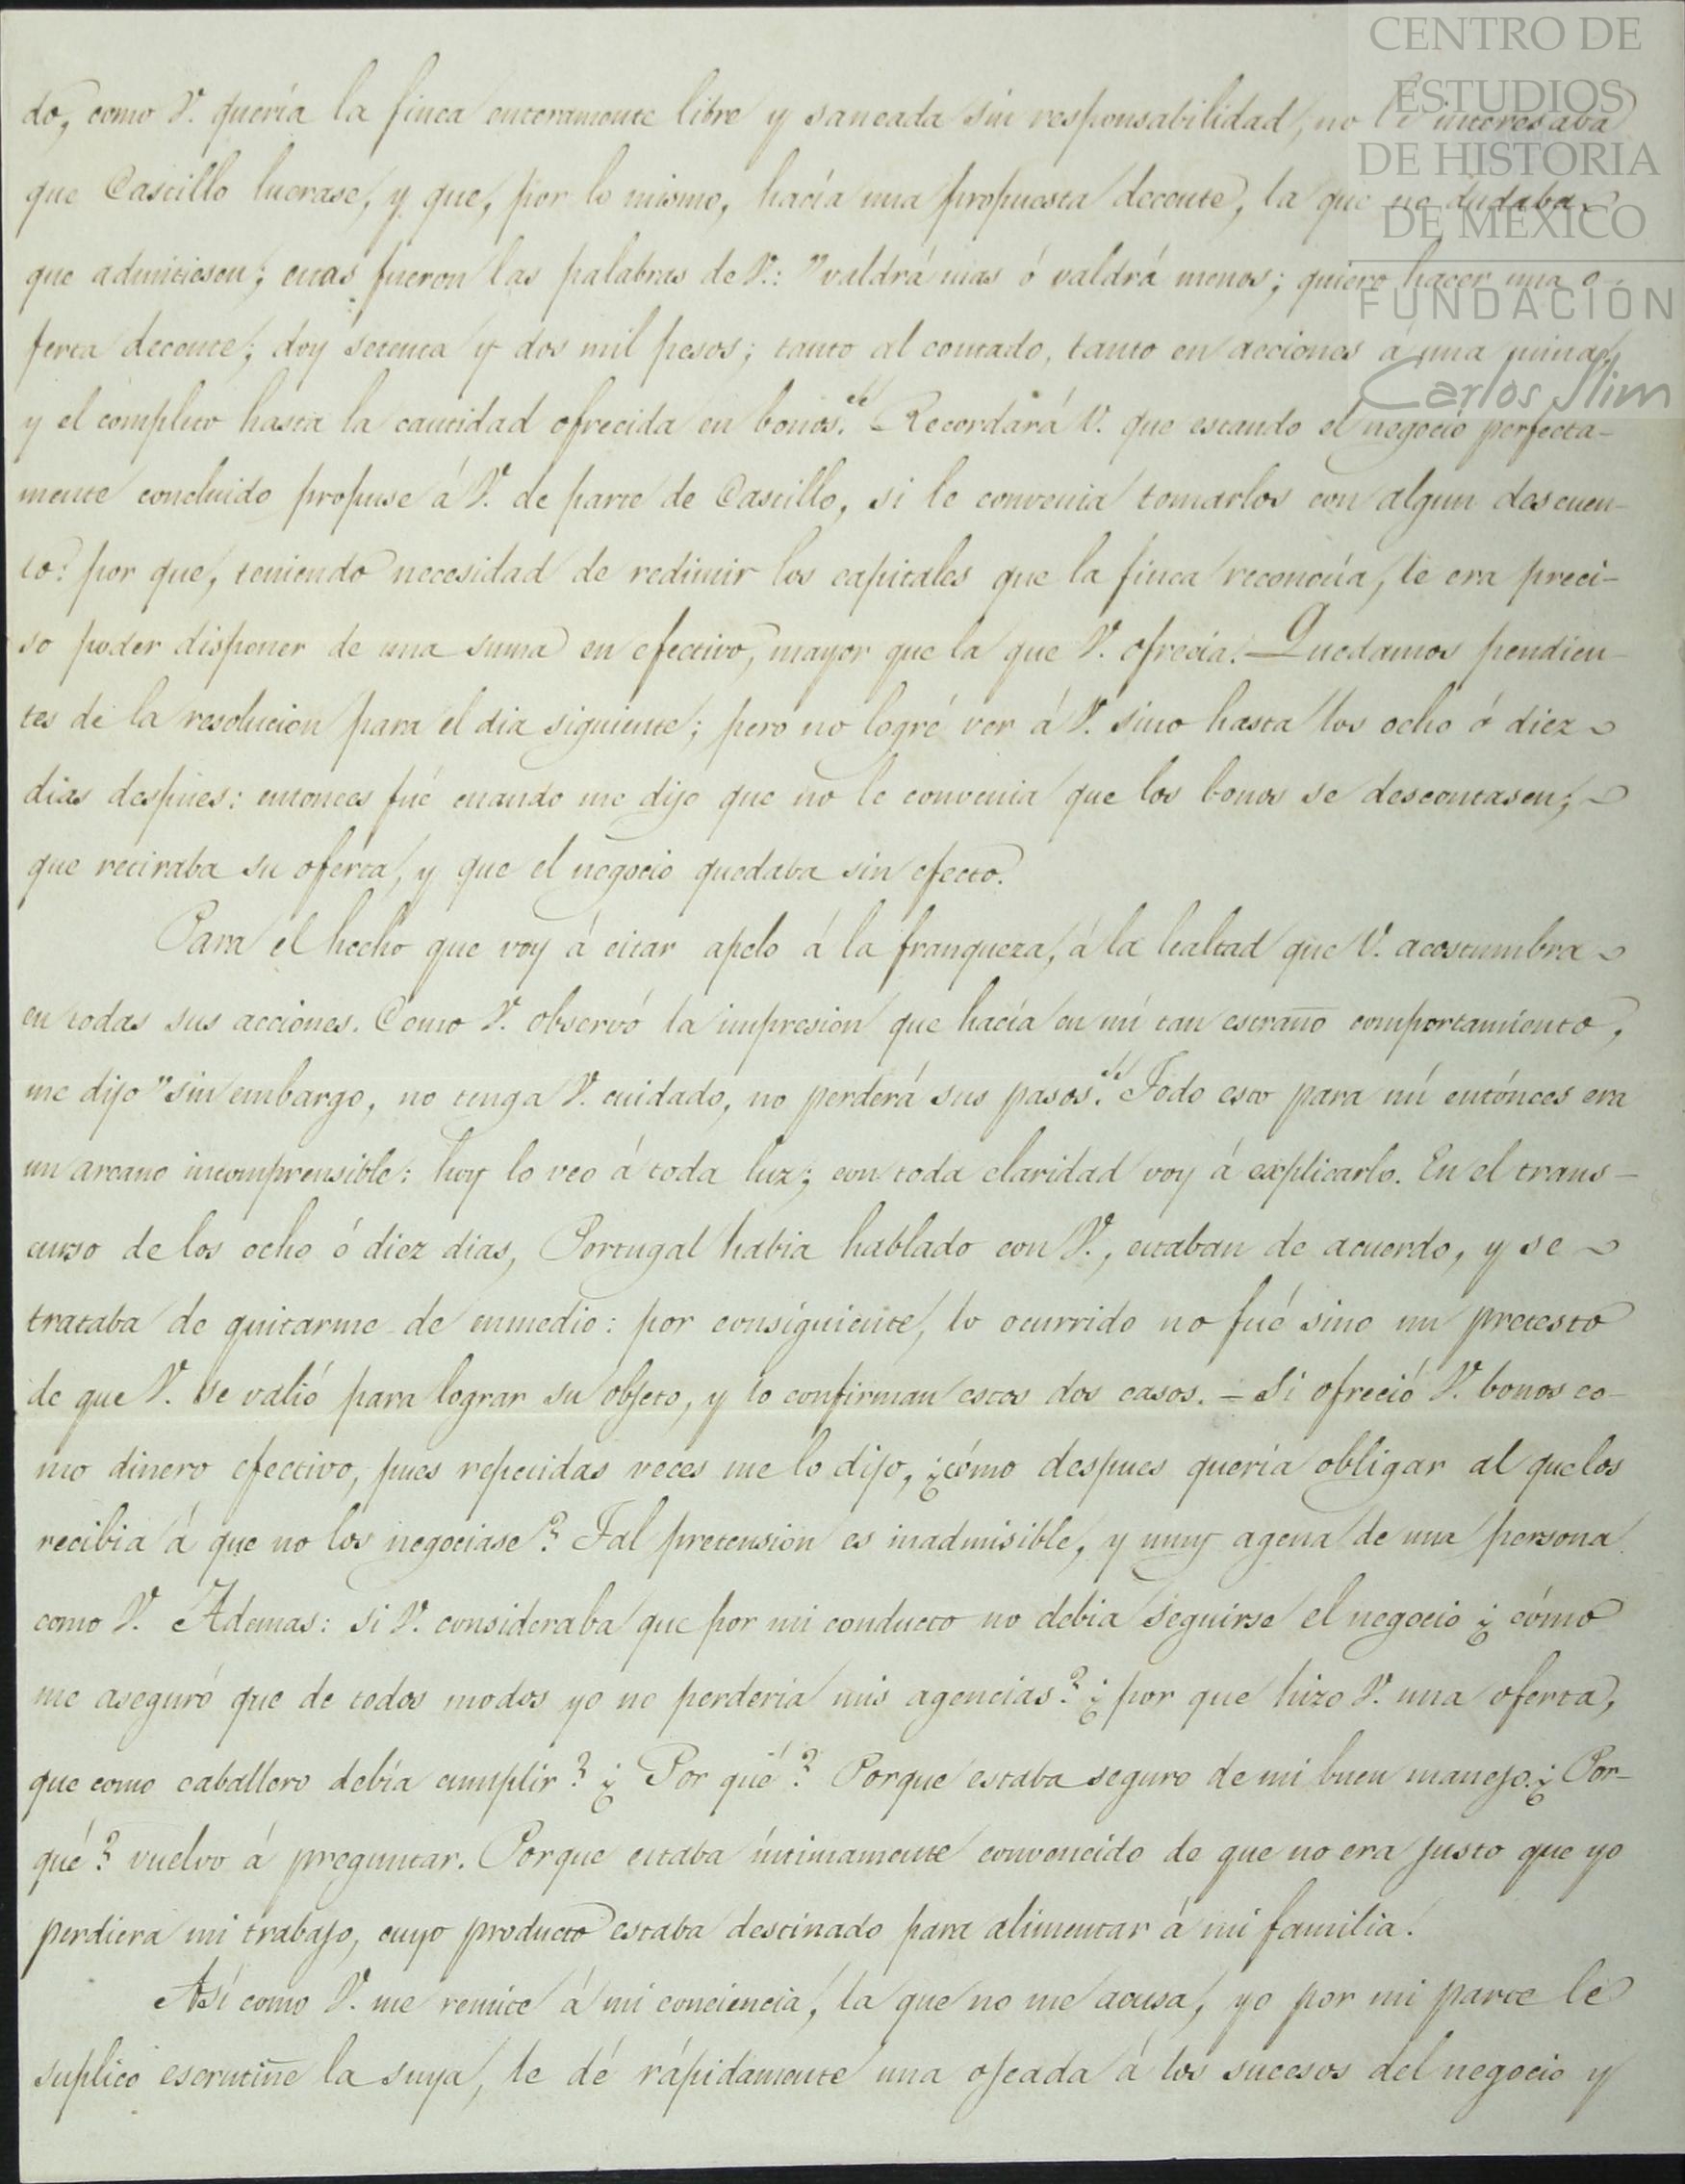 CENTRO DE
ESTUDIOS
DE HISTORIA
DE MÉXICO
FUNDACIÓN
Carlos Slim
do, como V. quería la finca enteramente libre y saneada sin responsabilidad, no le interesaba
que Castillo lucrase, y que, por lo mismo, hacía una propuesta decente, la que no dudaba
que admitiesen; estas fueron las palabras de V.: "valdrá mas ó valdrá menos; quiero hacer una o-
ferta decente; doy setenta y dos mil pesos; tanto al contado, tanto en acciones á una mina,
y el completo hasta la cantidad ofrecida en bonos." Recordará V. que estando el negocio perfecta-
mente concluido propuse á V. de parte de Castillo, si le convenia tomarlos con algun descuen-
to: por que, teniendo necesidad de redimir los capitales que la finca reconocía, le era preci-
so poder disponer de una suma en efectivo, mayor que la que V. ofrecia. Quedamos pendien-
tes de la resolucion para el dia siguiente; pero no logré ver á V. sino hasta los ocho ó diez
dias despues: entonces fué cuando me dijo que no le convenia que los bonos se descontasen;
que retiraba su oferta, y que el negocio quedaba sin efecto.
Para el hecho que voy á citar apelo á la franqueza, á la lealtad que V. acostumbra
en todas sus acciones. Como V. observó la impresion que hacía en mí tan estraño comportamiento,
me dijo "sin embargo, no tenga V. cuidado, no perderá sus pasos." Todo esto para mí entónces era
un arcano incomprensible: hoy lo veo á toda luz; con toda claridad voy á explicarlo. En el trans-
curso de los ocho ó diez dias, Portugal habia hablado con V., estaban de acuerdo, y se
trataba de quitarme de enmedio: por consiguiente, lo ocurrido no fué sino un pretesto
de que V. se valió para lograr su objeto, y lo confirman estos dos casos. = Si ofreció V. bonos co-
mo dinero efectivo, pues repetidas veces me lo dijo, ¿cómo despues quería obligar al que los
recibia á que no los negociase? Tal pretension es inadmisible, y muy agena de una persona
como V. Ademas: si V. consideraba que por mi conducto no debia seguirse el negocio ¿cómo
me aseguró que de todos modos yo no perderia mis agencias? ¿por que hizo V. una oferta,
que como caballero debía cumplir? ¿Por qué? Porque estaba seguro de mi buen manejo. ¿Por-
qué? vuelvo á preguntar. Porque estaba íntimamente convencido de que no era justo que yo
perdiera mi trabajo, cuyo producto estaba destinado para alimentar á mi familia.
Así como V. me remite á mi conciencia, la que no me acusa, yo por mi parte le
suplico escrutiñe la suya, le dé rápidamente una ojeada á los sucesos del negocio y